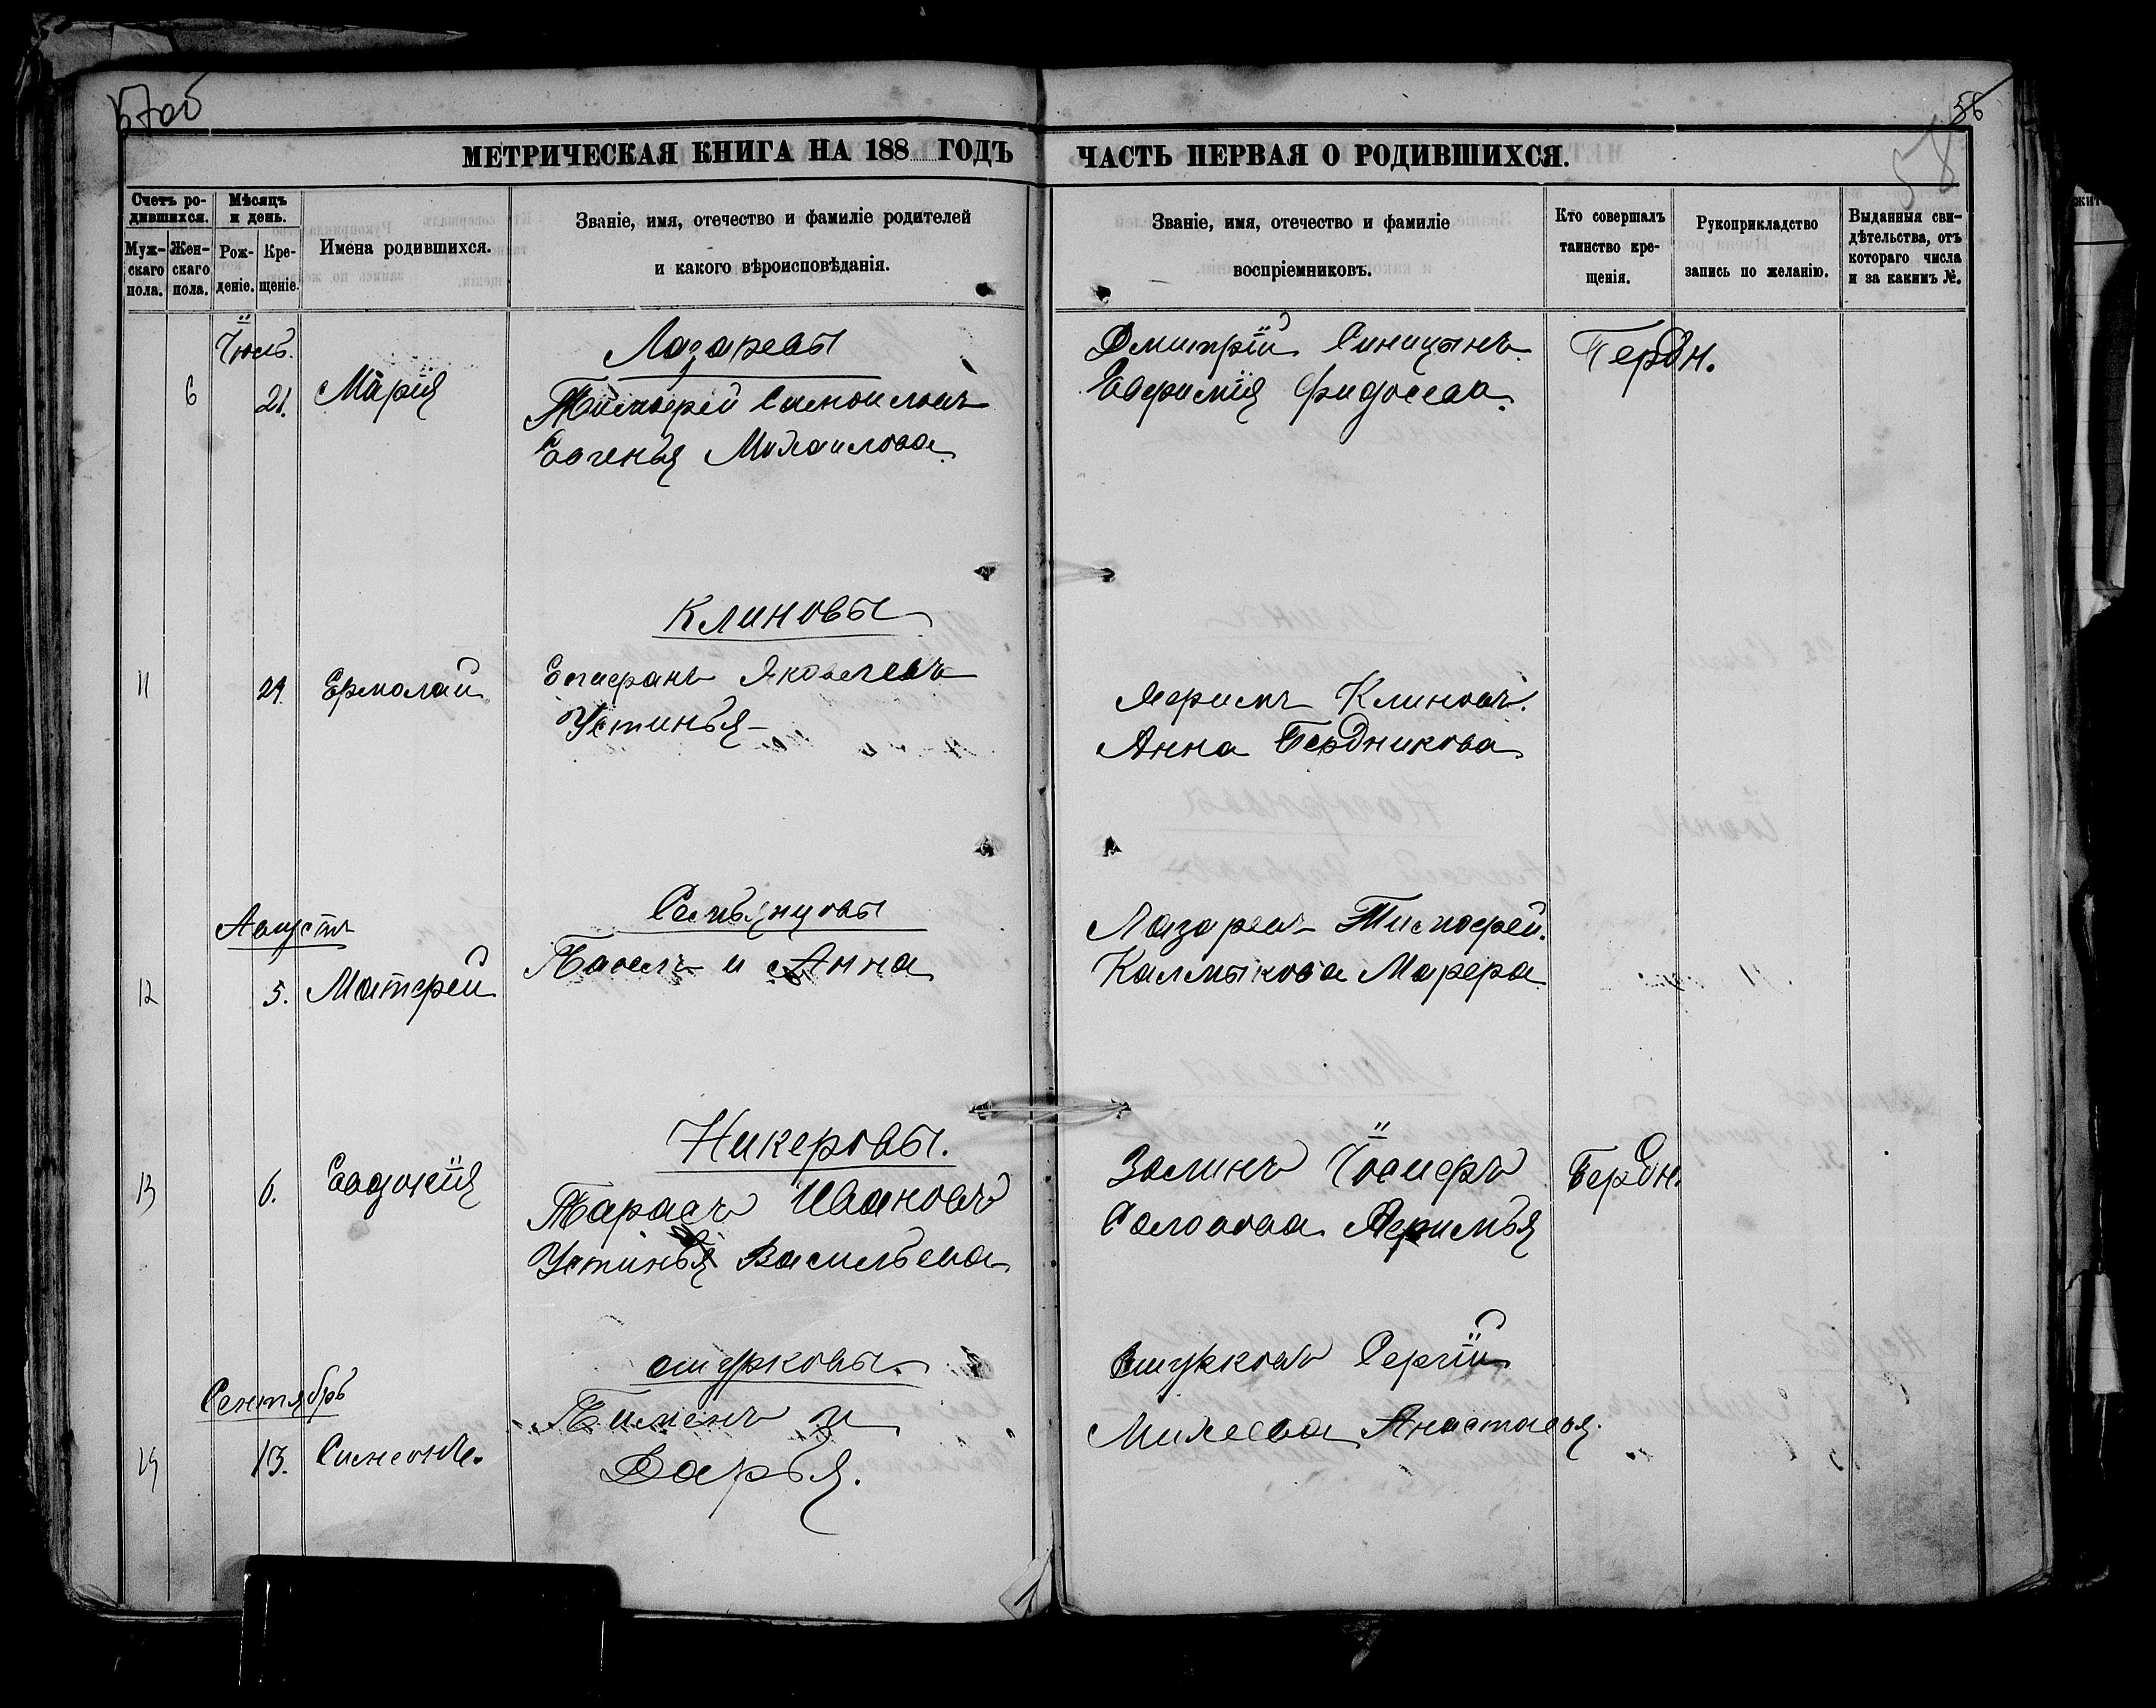 57об
56
58
МЕТРИЧЕСКАЯ КНИГА НА 188 ГОДЪ
ЧАСТЬ ПЕРВАЯ О РОДИВШИХСЯ.
Счетъ ро-
дившихся.
Муж-
скаго
пола.
Жен-
скаго
пола.
Мѣсяцъ
и день.
Рож-
деніе.
Кре-
щеніе.
Имена родившихся.
Званіе, имя, отечество и фамиліе родителей
и какого вѣроисповѣданія.
Званіе, имя, отечество и фамиліе
воспріемниковъ.
Кто совершалъ
таинство кре-
щенія.
Рукоприкладство
запись по желанію.
Выданныя сви-
дѣтельства, отъ
котораго числа
и за какимъ №.
Іюль.
6 21. Марія
Лазаревы
Тимофей Самоиловъ
Евгенья Михаилова
Дмитрій Синицынъ
Ефимія
Бердн.
Клиновы
11 29. Ермолай
Епифанъ Яковлевъ
Устинья
Ефимъ Клиновъ.
Анна Бердникова
Августъ
Семьянновы
12 5. Матфей
Павелъ и Анна
Лазаревъ Тимофей.
Калмыкова Марфа
Никеровы.
13 6. Евдокія
Тарасъ Ивановъ
Устинья Васильева
Золинъ Іосифъ
Соловова Ефимья
Бердн.
Сентябрь
Ошурковы.
14 13. Симеонъ.
Пименъ и
Дарья.
Ошурковъ Сергій
Михеева Анастасья.